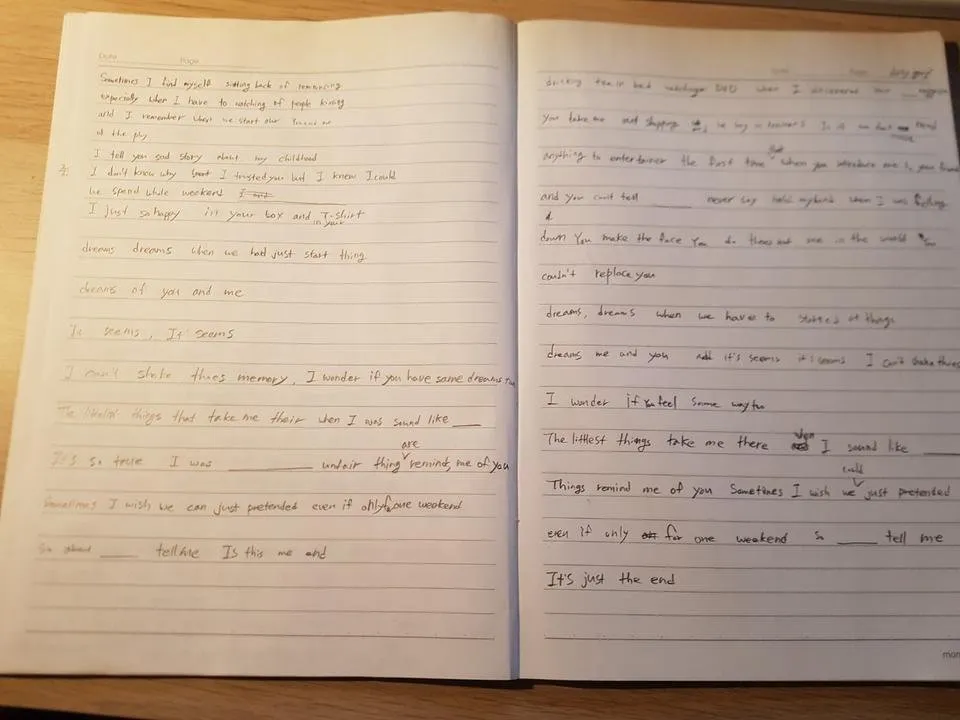 Date Page
Sometimes I find myself sitting back of
especially when I have to watching of people kissing
and I remember when we start our
of the
I tell you sad story about my childhood
I don't know why I trusted you but I knew I could
we spend while weekend
I just so happy in your box and in your T-shirt
dreams dreams when we had just start thing
dreams of you and me
It seems, It seems
I can't shake thoes memory, I wonder if you have same dreams
The things that take me their when I was sound like ___
It's so true I was ___ unfair thing are reminds me of you
Sometimes I wish we can just pretended even if only for one weekend
So ___ tell me Is this me and
drinking tea in bed DVD when I
you take me out shopping
anything to entertainer the first time that when you introduce me
and you can't tell ___ never say hold my hand when I was
down You make the face You do in the world
couldn't replace you
dreams, dreams when we have to at things
dreams me and you it's seems it's seems I can't shake
I wonder if you feel same way too
The littlest things take me there when I sound like ___
Things remind me of you Sometimes I wish we could just pretended
even if only for one weekend So ___ tell me
It's just the end